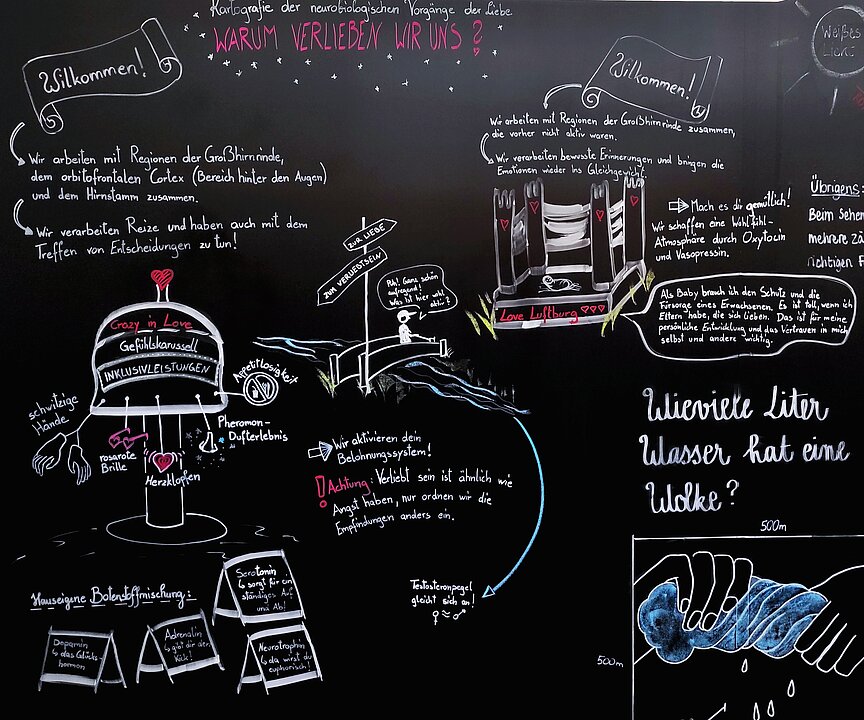 Kartografie der neurobiologischen Vorgänge der Liebe
WARUM VERLIEBEN WIR UNS?
Willkommen!
Wir arbeiten mit Regionen der Großhirnrinde,
dem orbitofrontalen Cortex (Bereich hinter den Augen)
und dem Hirnstamm zusammen.
Wir verarbeiten Reize und haben auch mit dem
Treffen von Entscheidungen zu tun!
Crazy in Love
Gefühlskarussell
INKLUSIVLEISTUNGEN
schwitzige
Hände
rosarote
Brille
Herzklopfen
Pheromon-
Dufterlebnis
Appetitlosigkeit
Hauseigene Botenstoffmischung:
Dopamin
↳ das Glücks-
hormon
Adrenalin
↳ gibt dir den
Kick!
Serotonin
↳ sorgt für ein
ständiges Auf
und Ab!
Neurotrophin
↳ da wirst du
euphorisch!
ZUR LIEBE
ZUM VERLIEBTSEIN
Puh! Ganz schön
aufregend!
Was ist hier wohl
aktiv?
Wir aktivieren dein
Belohnungssystem!
! Achtung: Verliebt sein ist ähnlich wie
Angst haben, nur ordnen wir die
Empfindungen anders ein.
Testosteronpegel
gleicht sich an!
♀ ≈ ♂
Willkommen!
Wir arbeiten mit Regionen der Großhirnrinde zusammen,
die vorher nicht aktiv waren.
Wir verarbeiten bewusste Erinnerungen und bringen die
Emotionen wieder ins Gleichgewicht.
Love Luftburg
Mach es dir gemütlich!
Wir schaffen eine Wohlfühl-
Atmosphäre durch Oxytocin
und Vasopressin.
Als Baby brauch ich den Schutz und die
Fürsorge eines Erwachsenen. Es ist toll, wenn ich
Eltern habe, die sich lieben. Das ist für meine
persönliche Entwicklung und das Vertrauen in mich
selbst und andere wichtig.
Weißes
Licht
Übrigens:
Beim Sehen
mehrere
richtigen
Wieviele Liter
Wasser hat eine
Wolke?
500m
500m